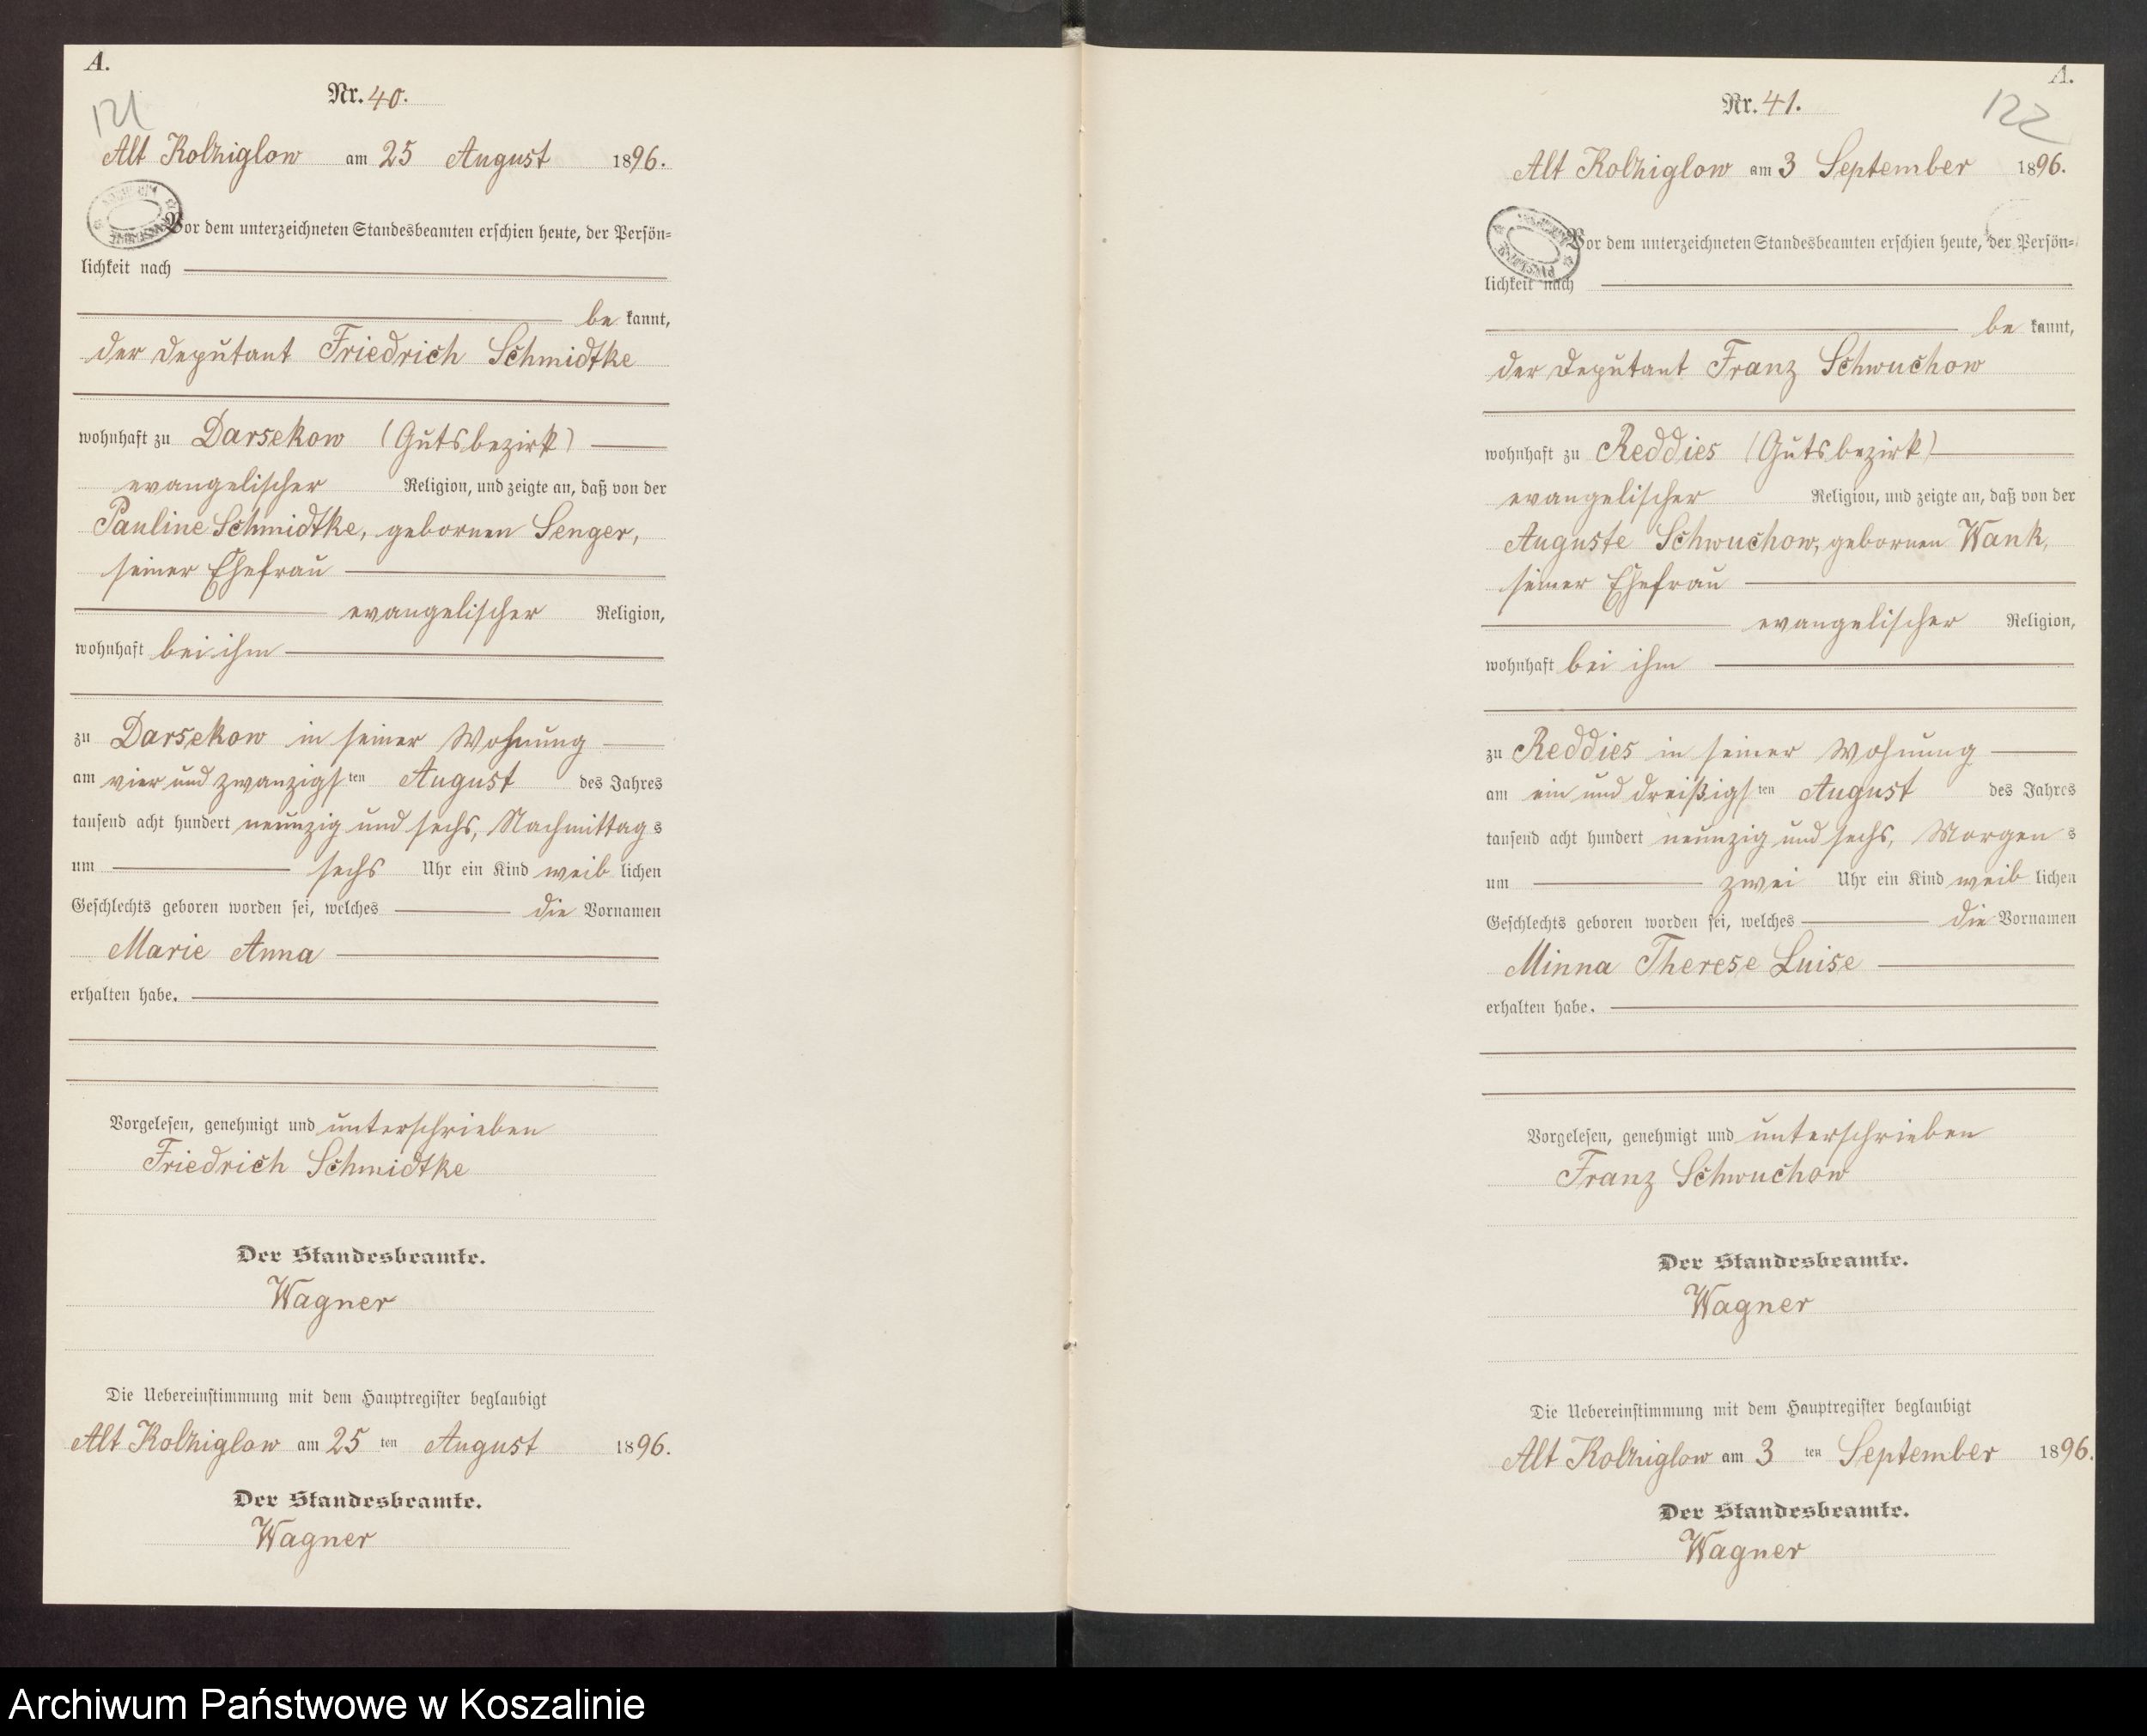 A.
121
Nr. 40.
Alt Kolziglow am 25 August 1896.
Vor dem unterzeichneten Standesbeamten erschien heute, der Persön=
lichkeit nach
be kannt,
der Deputant Friedrich Schmidtke
wohnhaft zu Darsekow (Gutsbezirk)
evangelischer Religion, und zeigte an, daß von der
Pauline Schmidtke, gebornen Senger,
seiner Ehefrau
evangelischer Religion,
wohnhaft bei ihm
zu Darsekow in seiner Wohnung
am vier und zwanzigsten August des Jahres
tausend acht hundert neunzig und sechs, Nachmittags
um sechs Uhr ein Kind weiblichen
Geschlechts geboren worden sei, welches die Vornamen
Marie Anna
erhalten habe.
Vorgelesen, genehmigt und unterschrieben
Friedrich Schmidtke
Der Standesbeamte.
Wagner
Die Uebereinstimmung mit dem Hauptregister beglaubigt
Alt Kolziglow am 25 ten August 1896.
Der Standesbeamte.
Wagner
A.
122
Nr. 41.
Alt Kolziglow am 3 September 1896.
Vor dem unterzeichneten Standesbeamten erschien heute, der Persön=
lichkeit nach
be kannt,
der Deputant Franz Schwuchow
wohnhaft zu Reddies (Gutsbezirk)
evangelischer Religion, und zeigte an, daß von der
Auguste Schwuchow, gebornen Wank,
seiner Ehefrau
evangelischer Religion,
wohnhaft bei ihm
zu Reddies in seiner Wohnung
am ein und dreißigsten August des Jahres
tausend acht hundert neunzig und sechs, Morgens
um zwei Uhr ein Kind weiblichen
Geschlechts geboren worden sei, welches die Vornamen
Minna Therese Luise
erhalten habe.
Vorgelesen, genehmigt und unterschrieben
Franz Schwuchow
Der Standesbeamte.
Wagner
Die Uebereinstimmung mit dem Hauptregister beglaubigt
Alt Kolziglow am 3 ten September 1896.
Der Standesbeamte.
Wagner
Archiwum Państwowe w Koszalinie